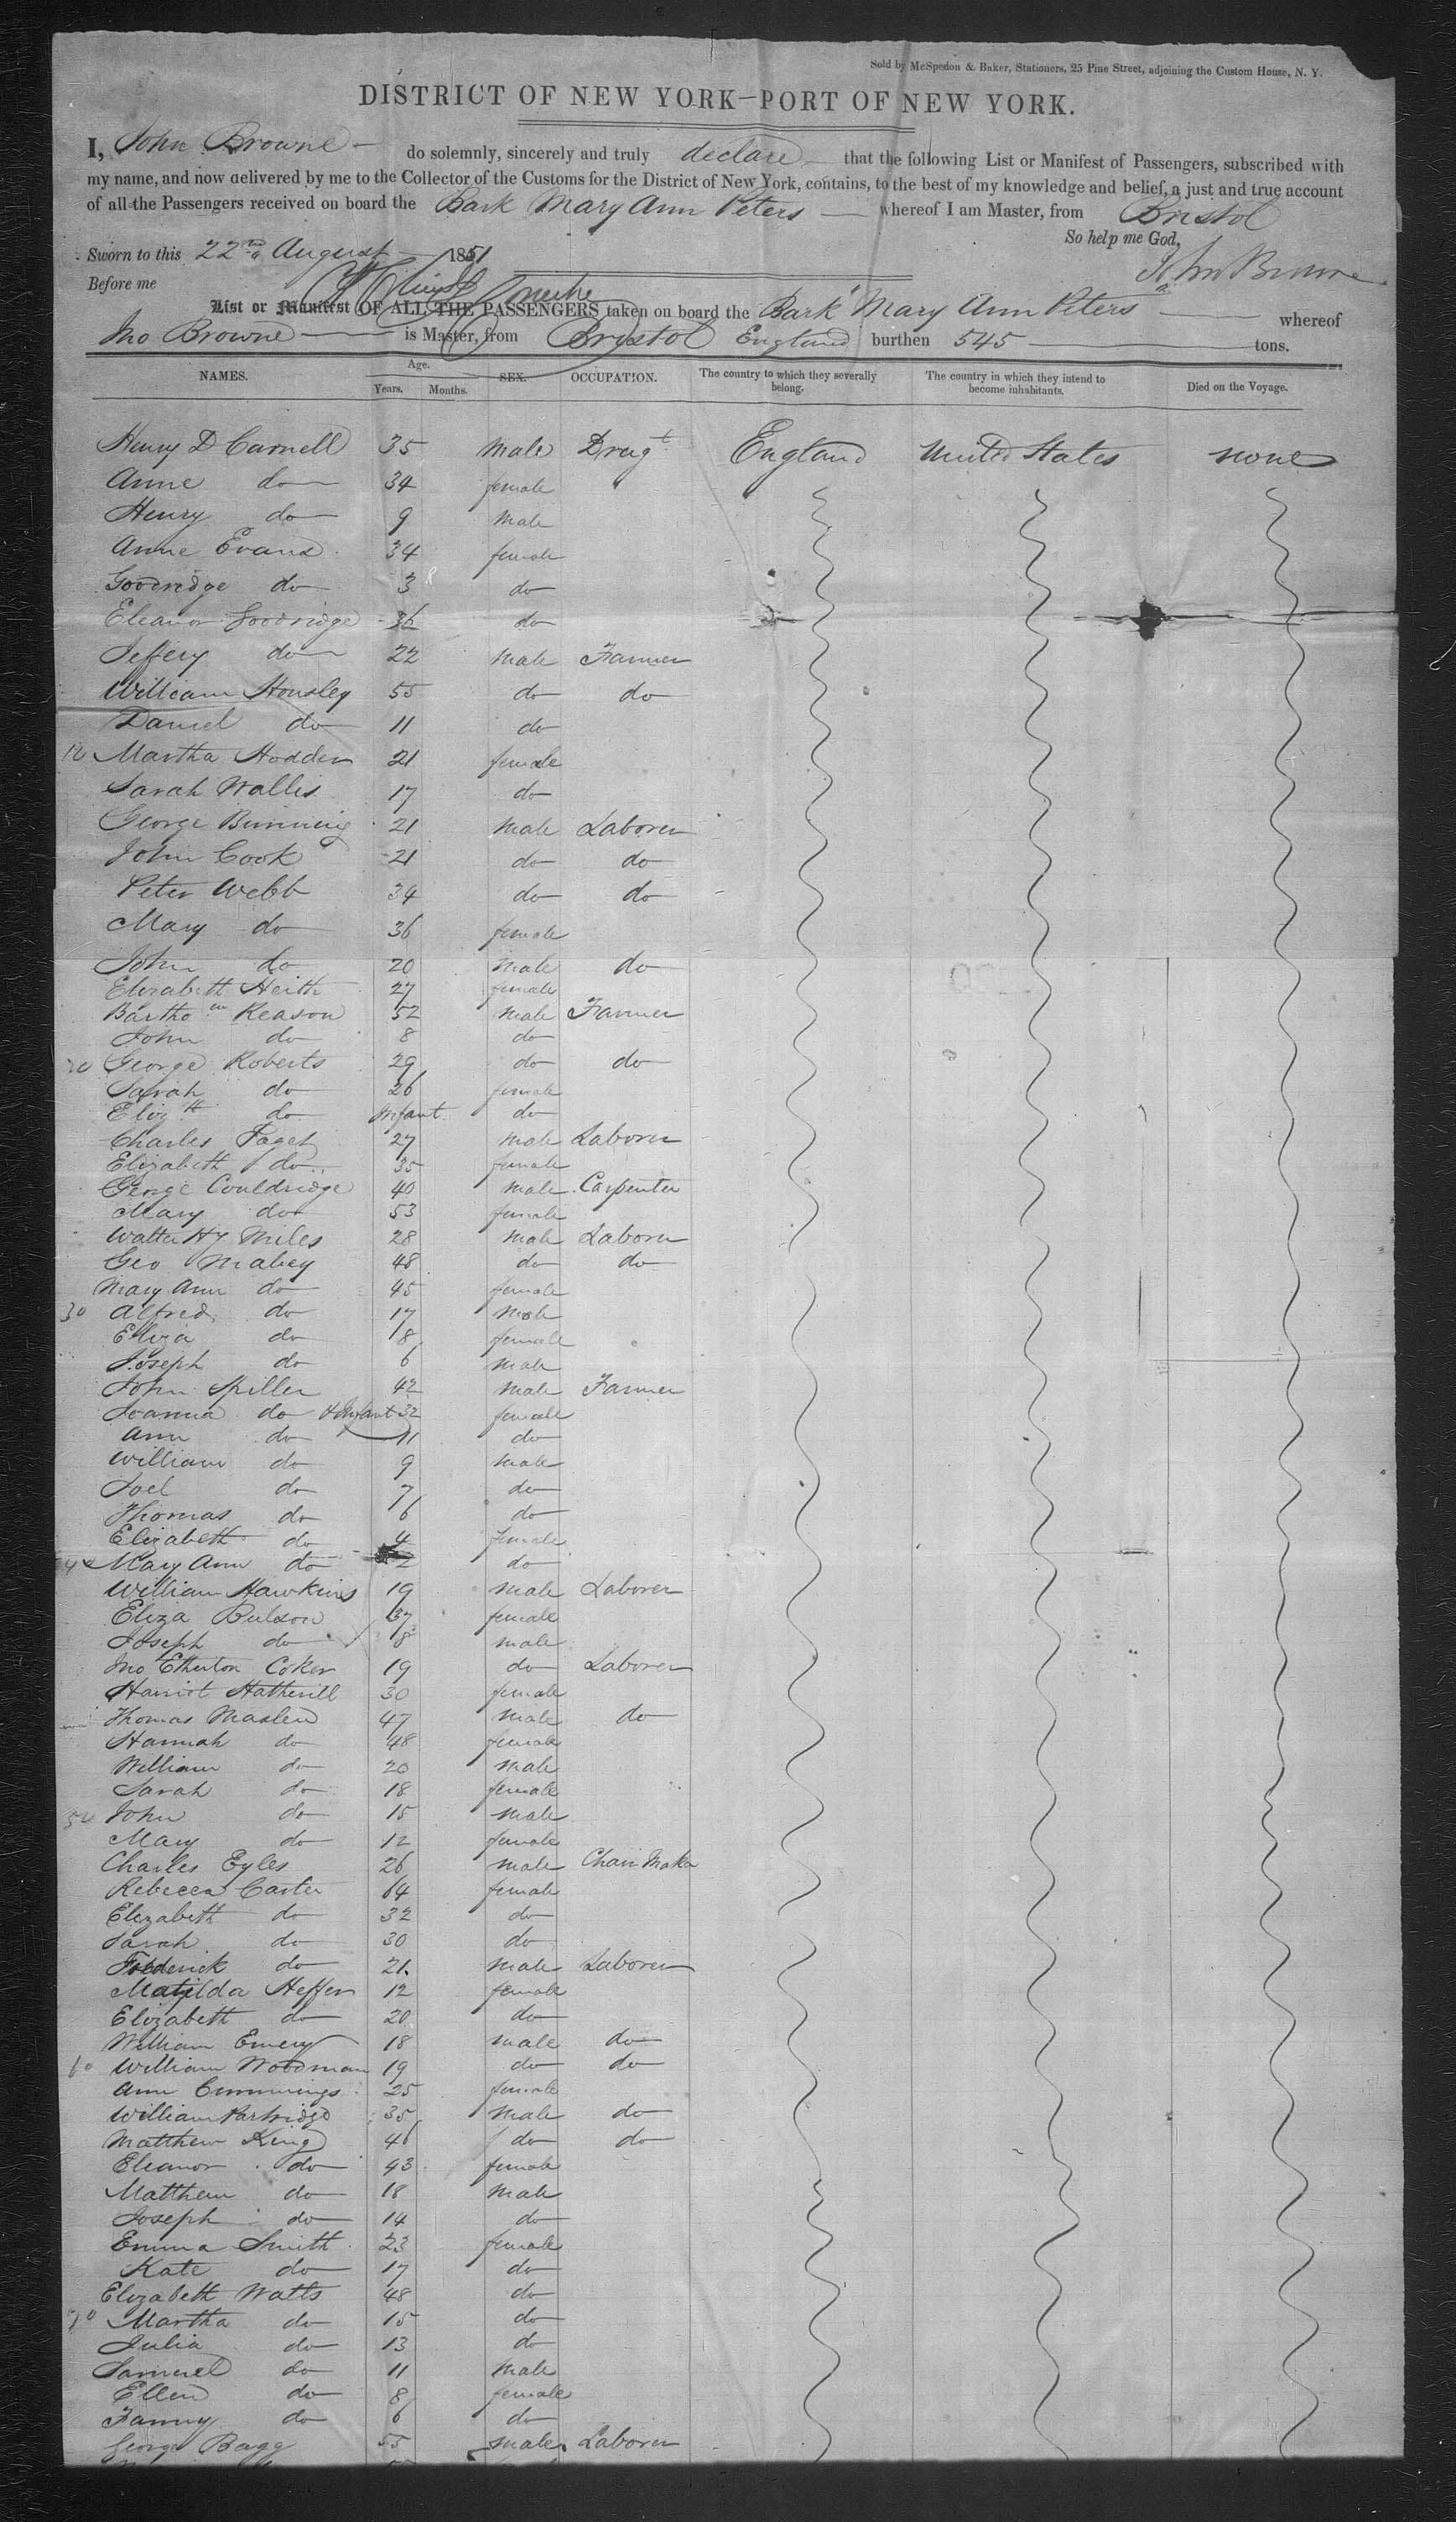 Sold by McSpedon & Baker, Stationers, 25 Pine Street, adjoining the Custom House, N. Y.
DISTRICT OF NEW YORK—PORT OF NEW YORK.
I, John Browne do solemnly, sincerely and truly declare that the following List or Manifest of Passengers, subscribed with
my name, and now delivered by me to the Collector of the Customs for the District of New York, contains, to the best of my knowledge and belief, a just and true account
of all the Passengers received on board the Bark Mary Ann Peters whereof I am Master, from Bristol
So help me God,
Sworn to this 22nd August 1851 John Browne
Before me
List or Manifest OF ALL THE PASSENGERS taken on board the Bark Mary Ann Peters whereof
Jno Browne is Master, from Bristol England burthen 545 tons.
NAMES. Age. Years. Months. SEX. OCCUPATION. The country to which they severally belong. The country in which they intend to become inhabitants. Died on the Voyage.
Henry D Carnell 35 male Drugt England United States none
Anne do 34 female
Henry do 9 male
Anne Evans 34 female
Goodridge do 3 do
Eleanor Goodridge 36 do
Jeffery do 22 male Farmer
William Housley 55 do do
Daniel do 11 do
10 Martha Hodder 21 female
Sarah Wallis 17 do
George 21 male Laborer
John Cook 21 do do
Peter Webb 34 do do
Mary do 36 female
John do 20 male do
Elizabeth Heith 27 female
Barthow Reason 52 male Farmer
John do 8 do
20 George Roberts 29 do do
Sarah do 26 female
Elizth do Infant do
Charles Faget 27 male Laborer
Elizabeth do 35 female
George Couldridge 40 male Carpenter
Mary do 53 female
Walter Hy Miles 28 male Laborer
Geo Mabey 48 do do
Mary Ann do 45 female
30 Alfred do 17 male
Eliza do 8 female
Joseph do 6 male
John Spiller 42 male Farmer
Joanna do & Infant 32 female
Ann do 11 do
William do 9 male
Joel do 7 do
Thomas do 6 do
Elizabeth do 4 female
40 Mary Ann do 2 do
William Hawkins 19 male Laborer
Eliza Bulson 37 female
Joseph do 8 male
Jno Etherton Coker 19 do Laborer
Harriot Hatherill 30 female
Thomas Maslen 47 male do
Hannah do 48 female
William do 20 male
Sarah do 18 female
50 John do 15 male
Mary do 12 female
Charles Eyles 26 male Chair Maker
Rebecca Carter 64 female
Elizabeth do 32 do
Sarah do 30 do
Frederick do 21 male Laborer
Matilda Heffer 12 female
Elizabeth do 20 do
William Emery 18 male do
60 William Woodman 19 do do
Ann Cummings 25 female
William Partridge 35 male do
Matthew King 46 do do
Eleanor do 43 female
Matthew do 18 male
Joseph do 14 do
Emma Smith 23 female
Kate do 17 do
Elizabeth Watts 48 do
70 Martha do 15 do
Julia do 13 do
Samuel do 11 male
Ellen do 8 female
Fanny do 6 do
George Bagg 55 male Laborer